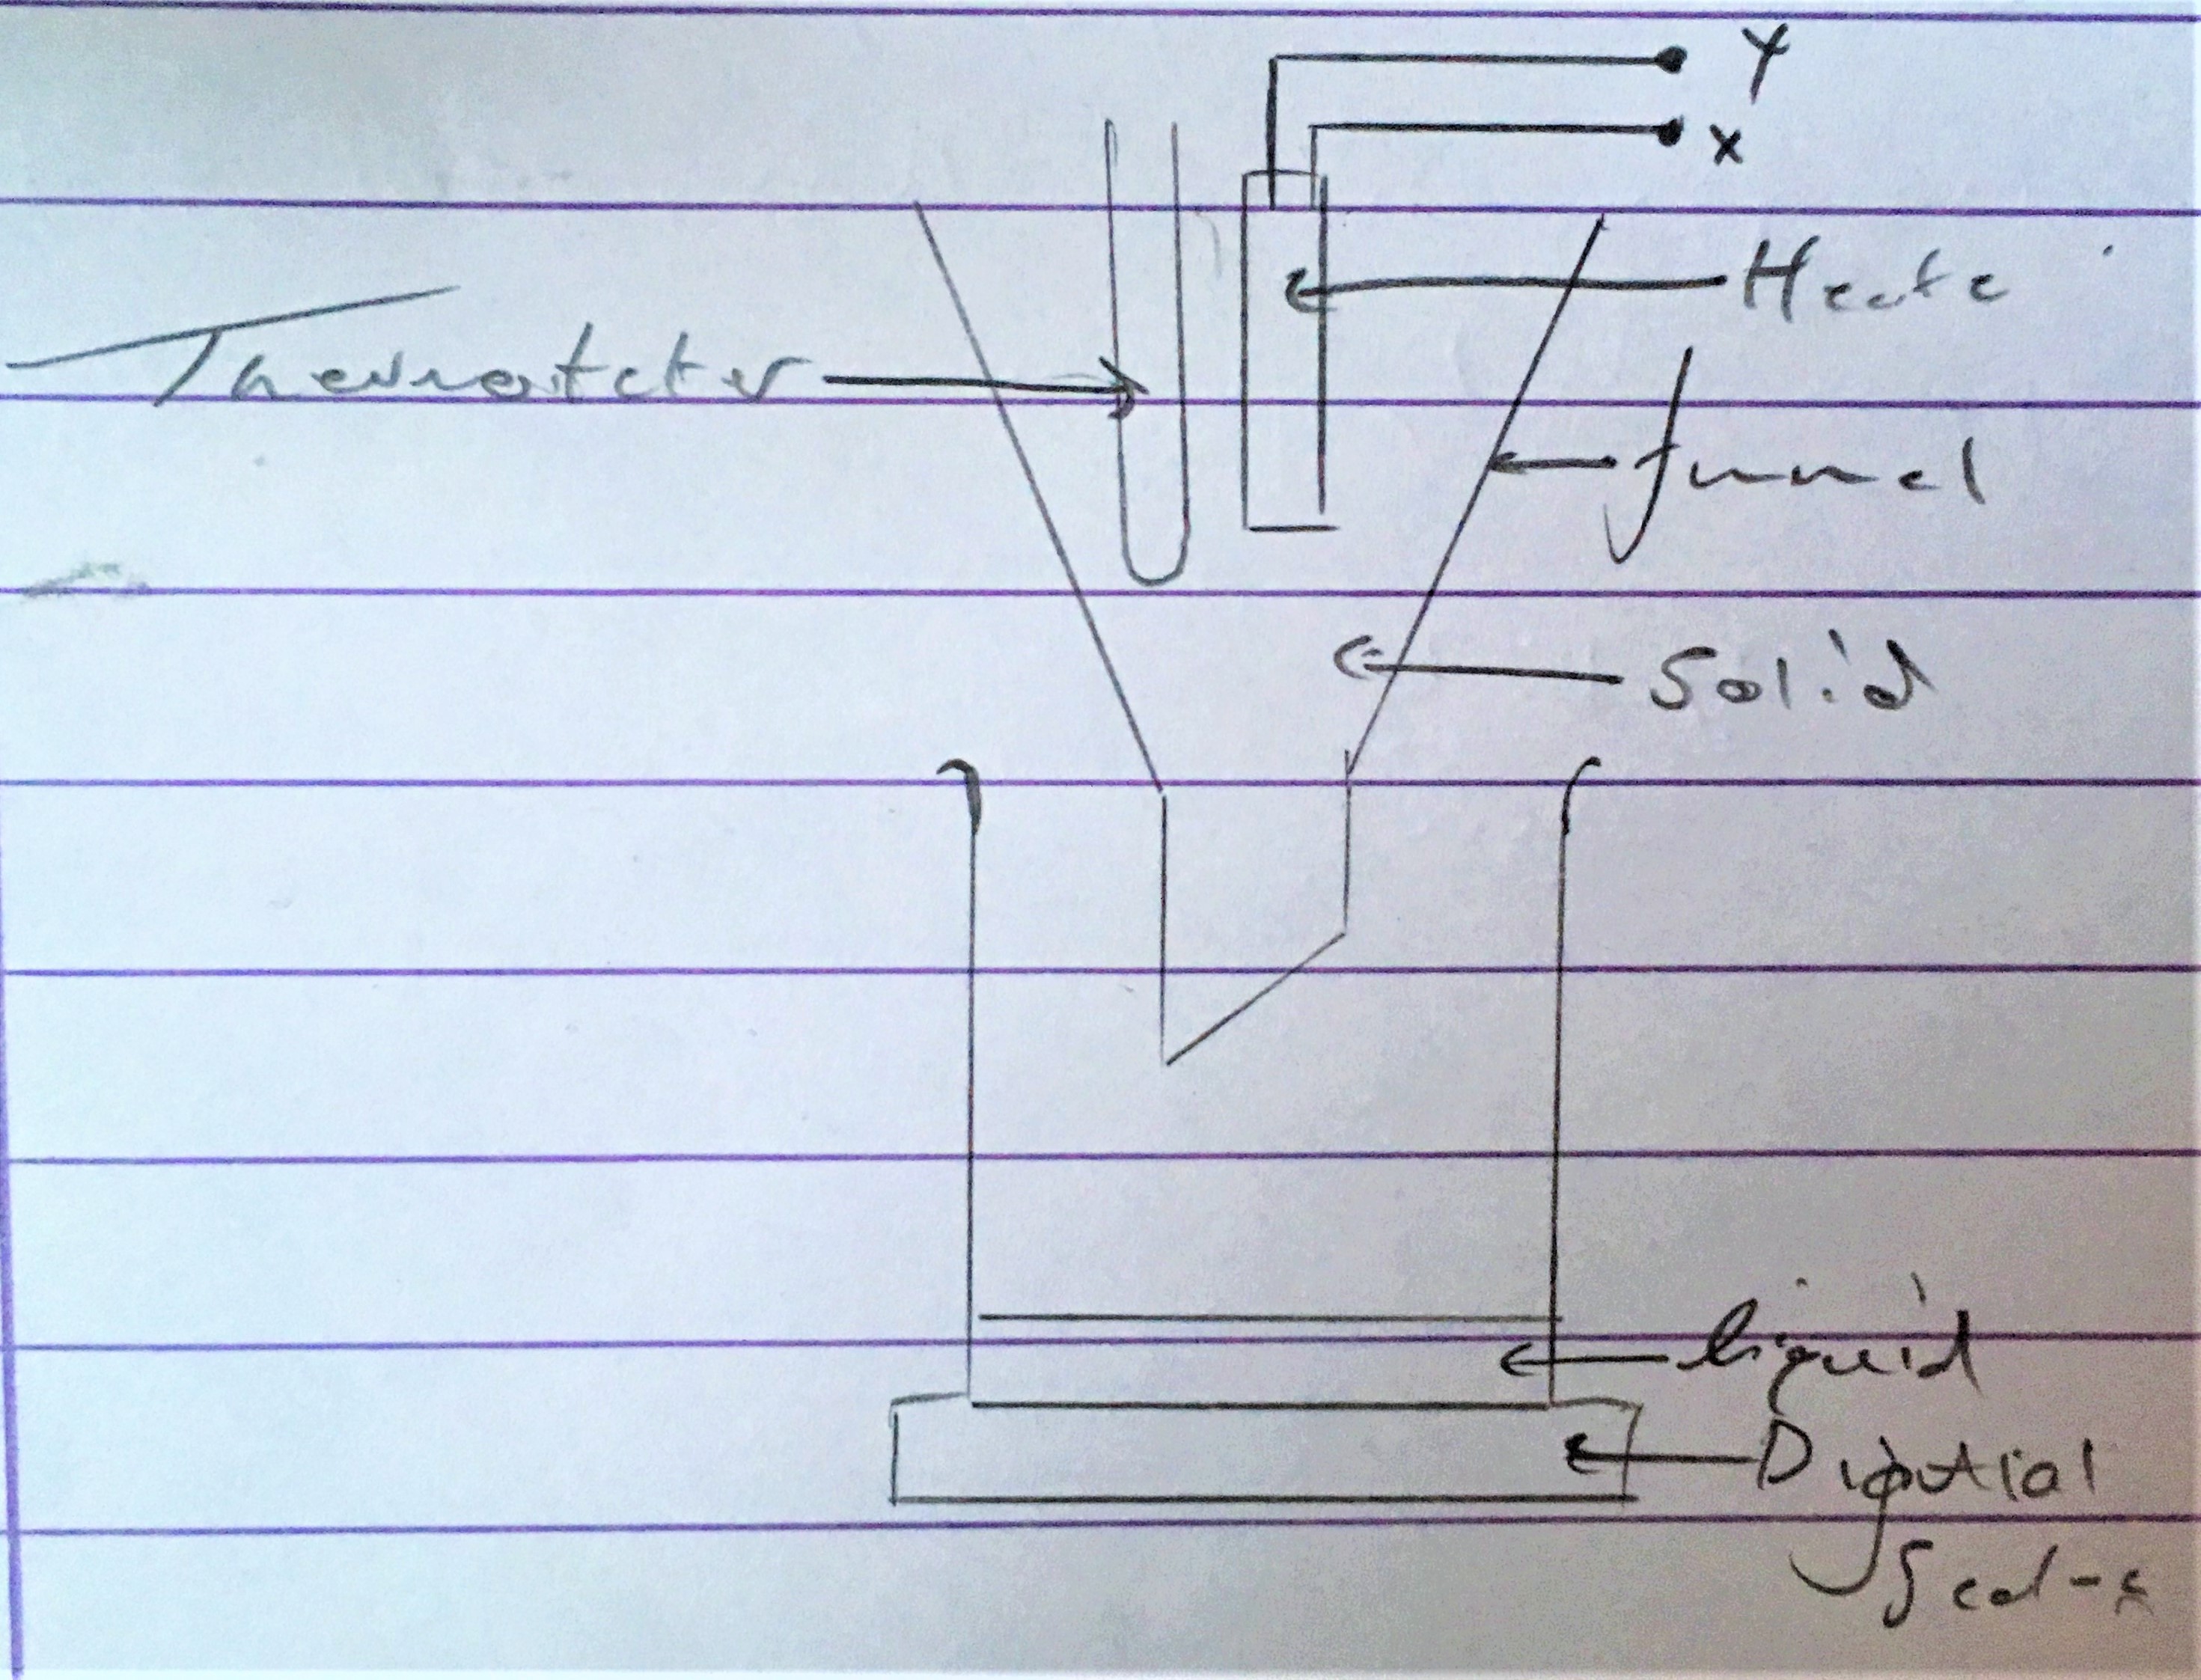 Y
X
Heate
Thermoteter
funnel
Solid
liquid
Digitial